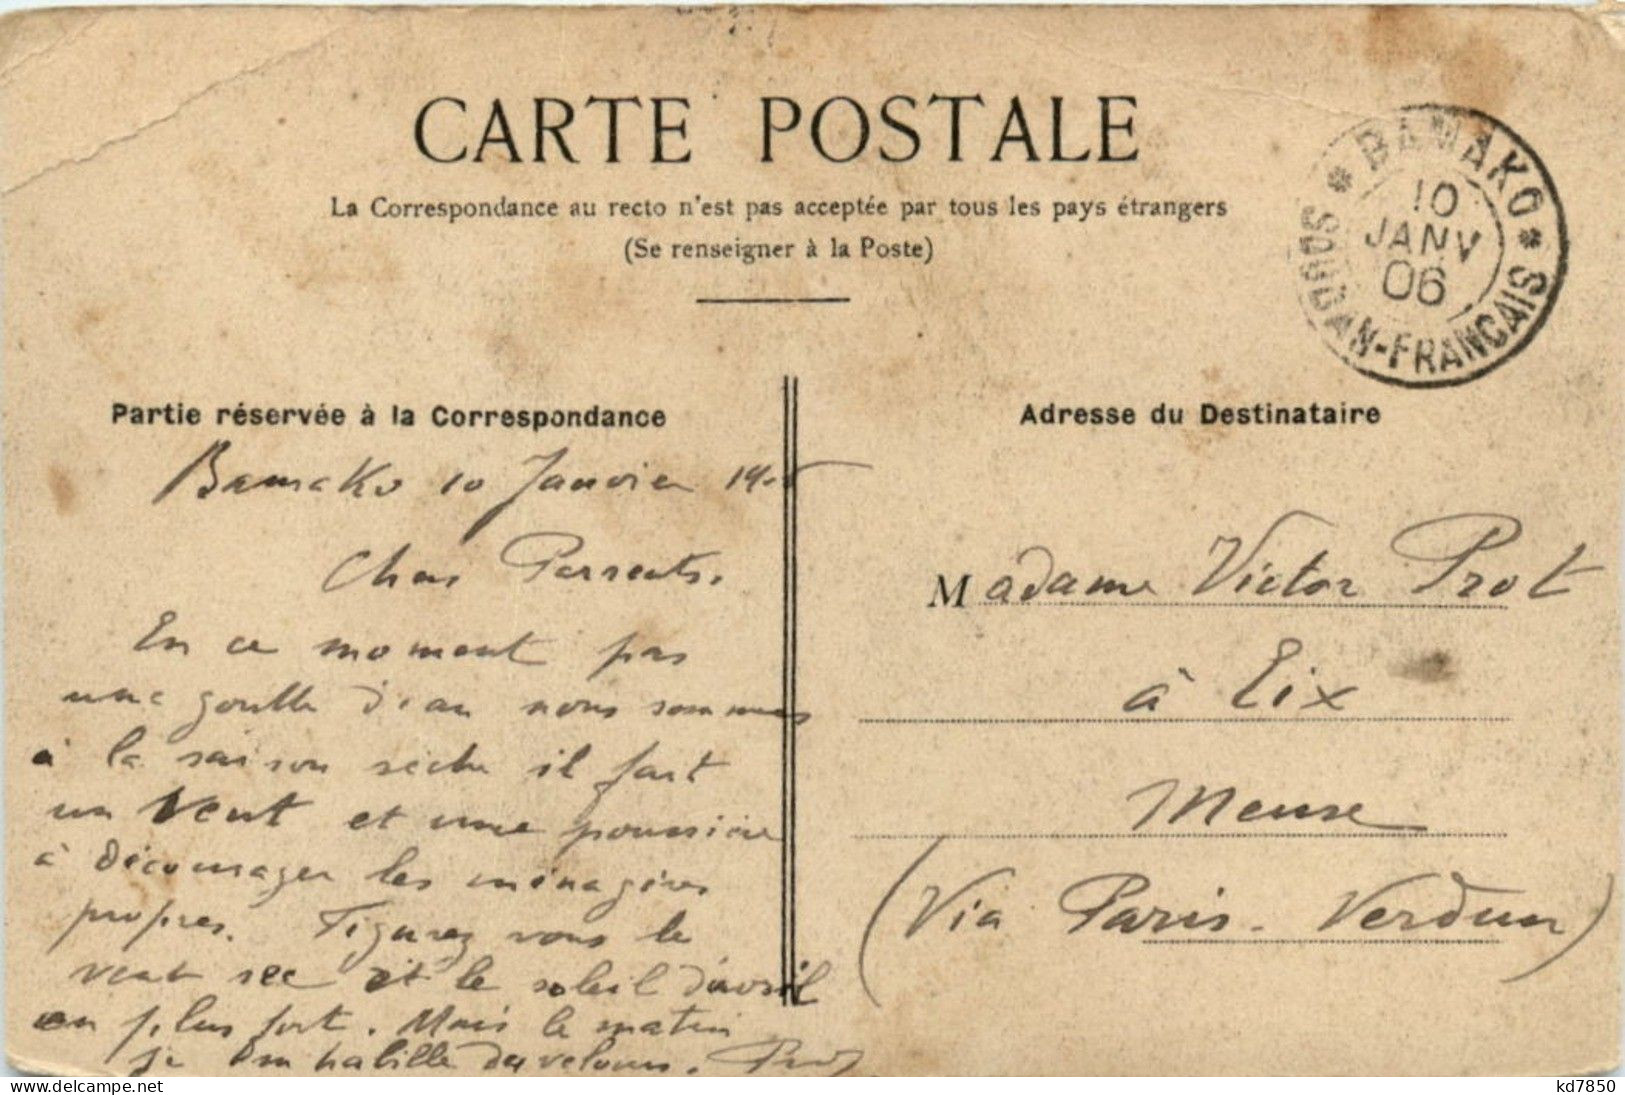 CARTE POSTALE
La Correspondance au recto n'est pas acceptée par tous les pays étrangers
(Se renseigner à la Poste)
BAMAKO
10
JANV
06
SOUDAN-FRANCAIS
Partie réservée à la Correspondance
Adresse du Destinataire
Bamako 10 Janvier
Chers Parents.
En ce moment pas
une goutte d'eau nous sommes
à la saison sèche il fait
un vent et une poussière
à décourager les ménagères
propres. Figurez vous le
vent sec et le soleil d'avril
en plus fort. Mais le matin
je m'habille de velours. Prot
Madame Victor Prot
à Eix
Meuse
(Via Paris. Verdun)
www.delcampe.net
kd7850